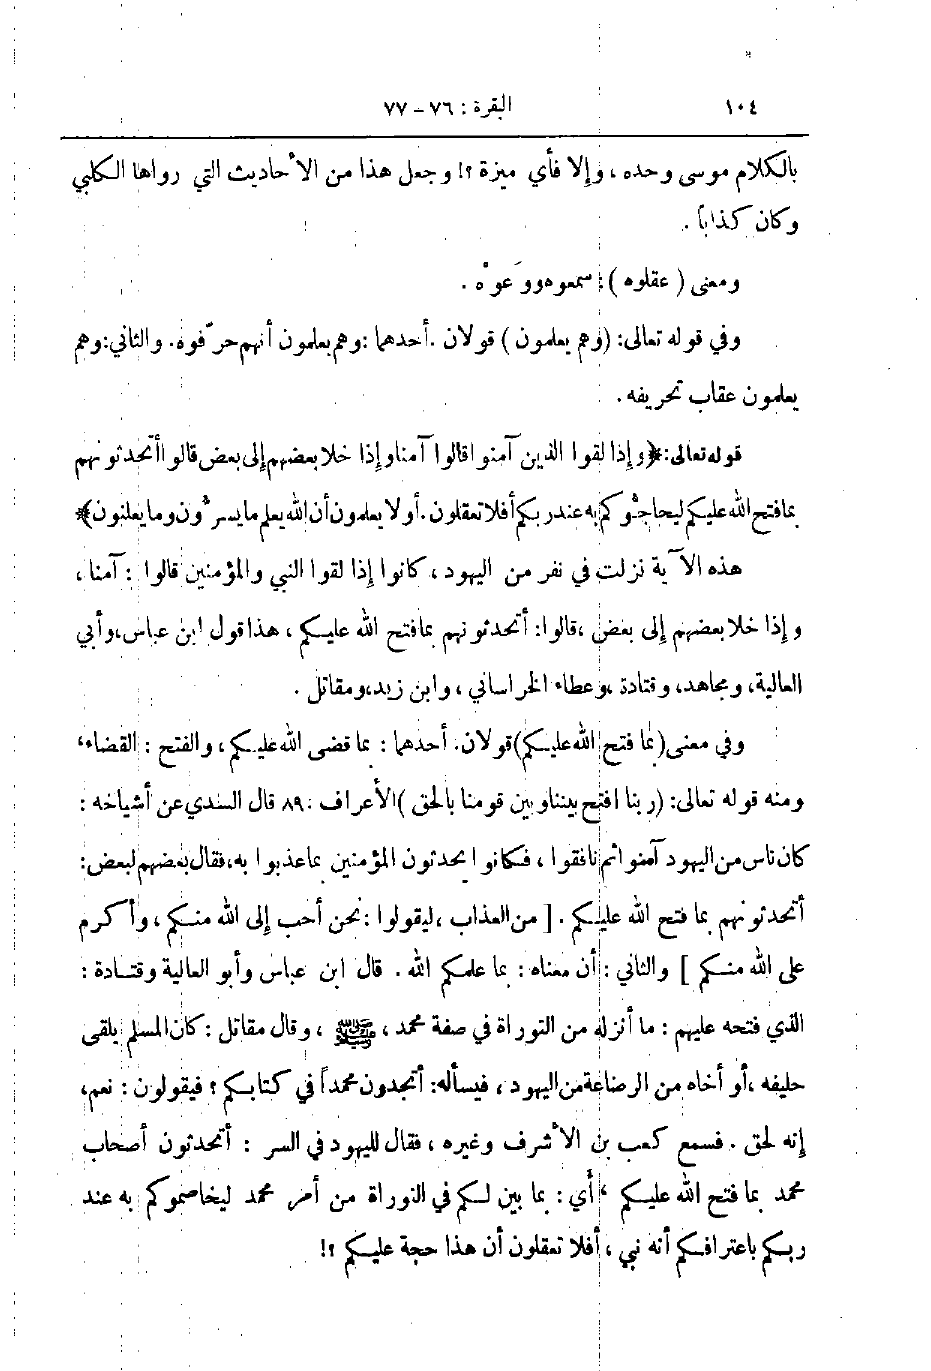 ١٠٤ البقرة : ٧٦ – ٧٧
بالكلام موسى وحده ، وإلا فأي ميزة ؟! وجعل هذا من الأحاديث التي رواها الكلبي
وكان كذاباً .
ومعنى ( عقلوه ) : سمعوه ووَعوْه .
وفي قوله تعالى : ( وهم يعلمون ) قولان . أحدهما : وهم يعلمون أنهم حرّفوه . والثاني : وهم
يعلمون عقاب تحريفه .
قوله تعالى : ﴿ وإذا لقوا الذين آمنوا قالوا آمنا وإذا خلا بعضهم إلى بعض قالوا أتحدثونهم
بما فتح الله عليكم ليحاجُّوكم به عند ربكم أفلا تعقلون . أولا يعلمون أن الله يعلم ما يسرُّون وما يعلنون ﴾
هذه الآية نزلت في نفر من اليهود ، كانوا إذا لقوا النبي والمؤمنين قالوا : آمنا ،
وإذا خلا بعضهم إلى بعض ، قالوا : أتحدثونهم بما فتح الله عليكم ، هذا قول ابن عباس ، وأبي
العالية ، ومجاهد ، وقتادة ، وعطاء الخراساني ، وابن زيد ، ومقاتل .
وفي معنى ( بما فتح الله عليكم ) قولان . أحدهما : بما قضى الله عليكم ، والفتح : القضاء ،
ومنه قوله تعالى : ( ربنا افتح بيننا وبين قومنا بالحق ) الأعراف : ٨٩ قال السدي عن أشياخه :
كان ناس من اليهود آمنوا ثم نافقوا ، فكانوا يحدثون المؤمنين بما عذبوا به ، فقال بعضهم لبعض :
أتحدثونهم بما فتح الله عليكم . [ من العذاب ، ليقولوا : نحن أحب إلى الله منكم ، وأكرم
على الله منكم ] والثاني : أن معناه : بما علمكم الله . قال ابن عباس وأبو العالية وقتادة :
الذي فتحه عليهم : ما أنزله من التوراة في صفة محمد ، ﷺ ، وقال مقاتل : كان المسلم يلقى
حليفه ، أو أخاه من الرضاعة من اليهود ، فيسأله : أتجدون محمداً في كتابكم ؟ فيقولون : نعم ،
إنه لحق . فسمع كعب بن الأشرف وغيره ، فقال لليهود في السر : أتحدثون أصحاب
محمد بما فتح الله عليكم ، أي : بما بين لكم في التوراة من أمر محمد ليخاصموكم به عند
ربكم باعترافكم أنه نبي ، أفلا تعقلون أن هذا حجة عليكم ؟!